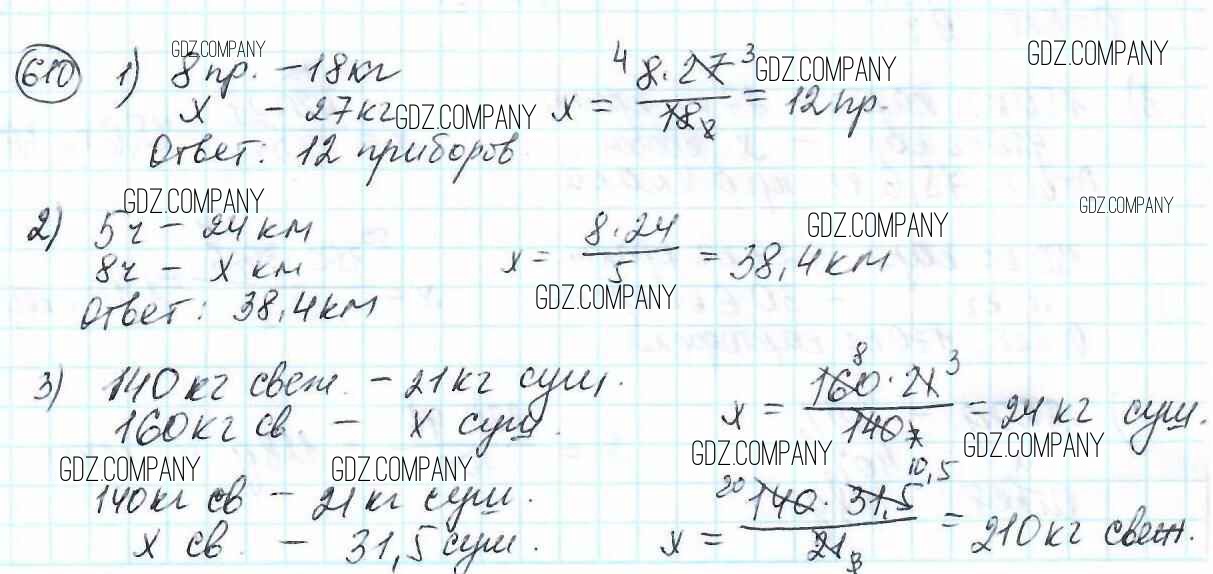 610 1) 8 пр. – 18 кг x = 8·27/18 = 12 пр.
x – 27 кг
Ответ: 12 приборов
2) 5ч – 24 км x = 8·24/5 = 38,4 км
8ч – x км
Ответ: 38,4 км
3) 140 кг свеж. – 21 кг суш. x = 160·21/140 = 24 кг суш.
160 кг св. – x суш.
140 кг св – 21 кг суш. x = 140·31,5/21 = 210 кг свеж.
x св. – 31,5 суш.
GDZ.COMPANY
GDZ.COMPANY
GDZ.COMPANY
GDZ.COMPANY
GDZ.COMPANY
GDZ.COMPANY
GDZ.COMPANY
GDZ.COMPANY
GDZ.COMPANY
GDZ.COMPANY
GDZ.COMPANY
GDZ.COMPANY